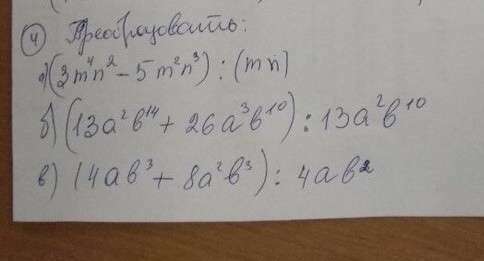 ④ Преобразовать:
а) (3m⁴n² - 5m²n³) : (mn)
б) (13a²b¹⁴ + 26a³b¹⁰) : 13a²b¹⁰
в) (4ab³ + 8a²b³) : 4ab²